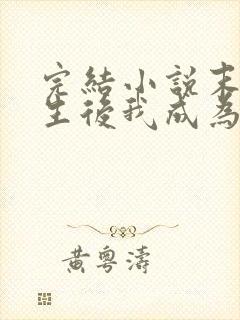 完結小說末
生後我成為
黃粵濤